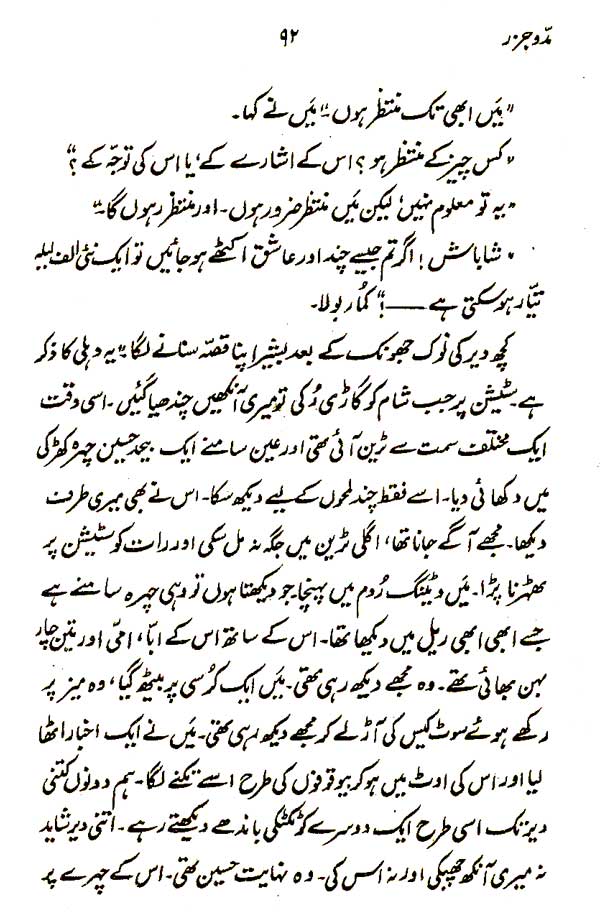 مدّوجزر ۹۲
"میَں ابھی تک منتظر ہوں۔" میَں نے کہا۔
"کس چیز کے منتظر ہو؟ اس کے اشارے کے، یا اس کی توجّہ کے؟"
"یہ تو معلوم نہیں، لیکن میَں منتظر ضرور ہوں۔ اور منتظر رہوں گا۔"
"شاباش! اگر تم جیسے چند اور عاشق اکٹھے ہو جائیں تو ایک نئی الف لیلہ
تیّار ہو سکتی ہے ——!" کمُار بولا۔
کچھ دیر کی نوک جھونک کے بعد بشیر اپنا قصّہ سنانے لگا: "یہ دہلی کا ذکر
ہے۔ سٹیشن پر جب شام کو گاڑی رُکی تو میری آنکھیں چندھیا گئیں۔ اسی وقت
ایک مختلف سمت سے ٹرین آئی تھی اور عین سامنے ایک بیحد حسین چہرہ کھڑکی
میں دکھائی دیا۔ اسے فقط چند لمحوں کے لیے دیکھ سکا۔ اس نے بھی میری طرف
دیکھا۔ مجھے آگے جانا تھا، اگلی ٹرین میں جگہ نہ مل سکی اور رات کو سٹیشن پر
ٹھہرنا پڑا۔ میَں ویٹنگ رُوم میں پہنچا۔ جو دیکھتا ہوں تو وہی چہرہ سامنے ہے
جسے ابھی ابھی ریل میں دیکھا تھا۔ اس کے ساتھ اس کے ابّا، امّی اور تین چار
بہن بھائی تھے۔ وہ مجھے دیکھ رہی تھی۔ میَں ایک کرُسی پر بیٹھ گیا، وہ میز پر
رکھے ہوئے سوٹ کیس کی آڑ لے کر مجھے دیکھ رہی تھی۔ میَں نے ایک اخبار اٹھا
لیا اور اس کی اوٹ میں ہو کر بیوقوفوں کی طرح اسے تکنے لگا۔ ہم دونوں کتنی
دیر تک اسی طرح ایک دوسرے کو ٹکٹکی باندھے دیکھتے رہے۔ اتنی دیر شاید
نہ میری آنکھ جھپکی اور نہ اس کی۔ وہ نہایت حسین تھی۔ اس کے چہرے پر